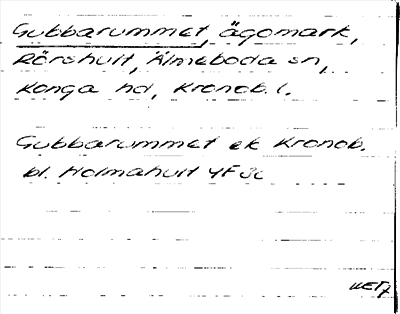 Gubbarummet, ägomark,
Rörshult, Älmeboda sn,
Konga hd, Kronob. l.
Gubbarummet ek Kronob.
bl. Holmahult 4F 3c